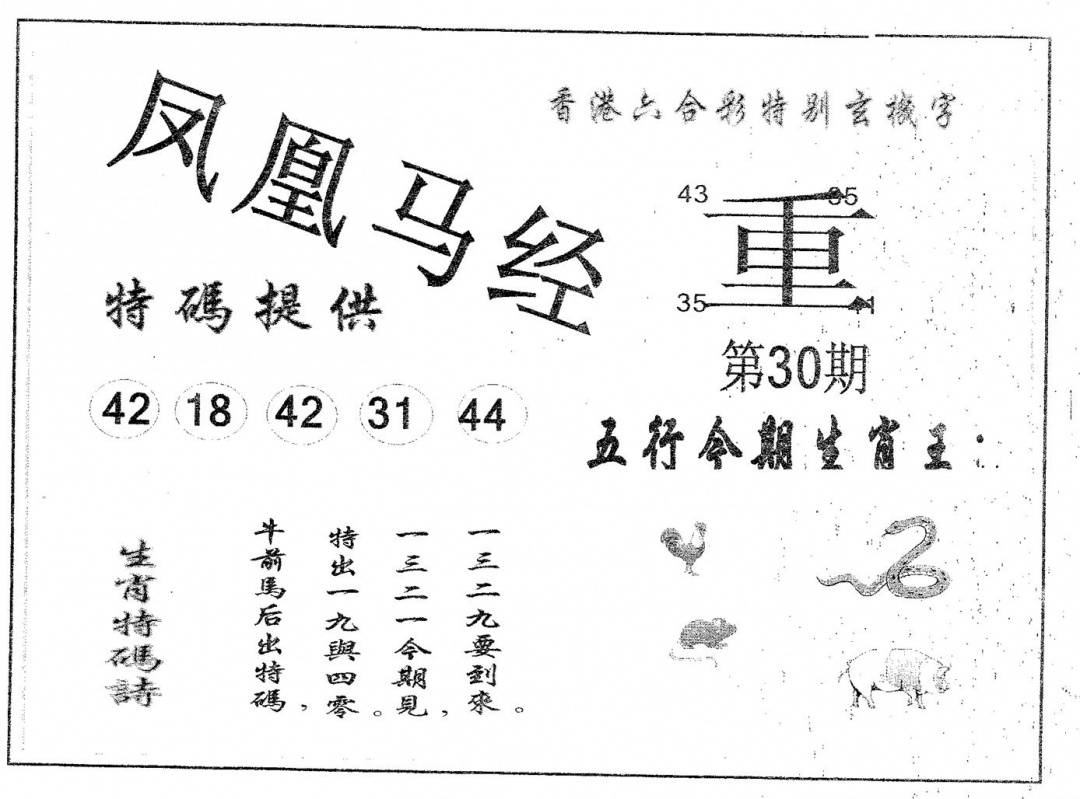 凤凰马经
香港六合彩特别玄機字
43 35
重
35
第30期
特碼提供
42 18 42 31 44
五行今期生肖王：
生肖特碼詩
牛前馬后出特碼，
特出一九與四零。
一三二一今期見，
一三二九要到來。